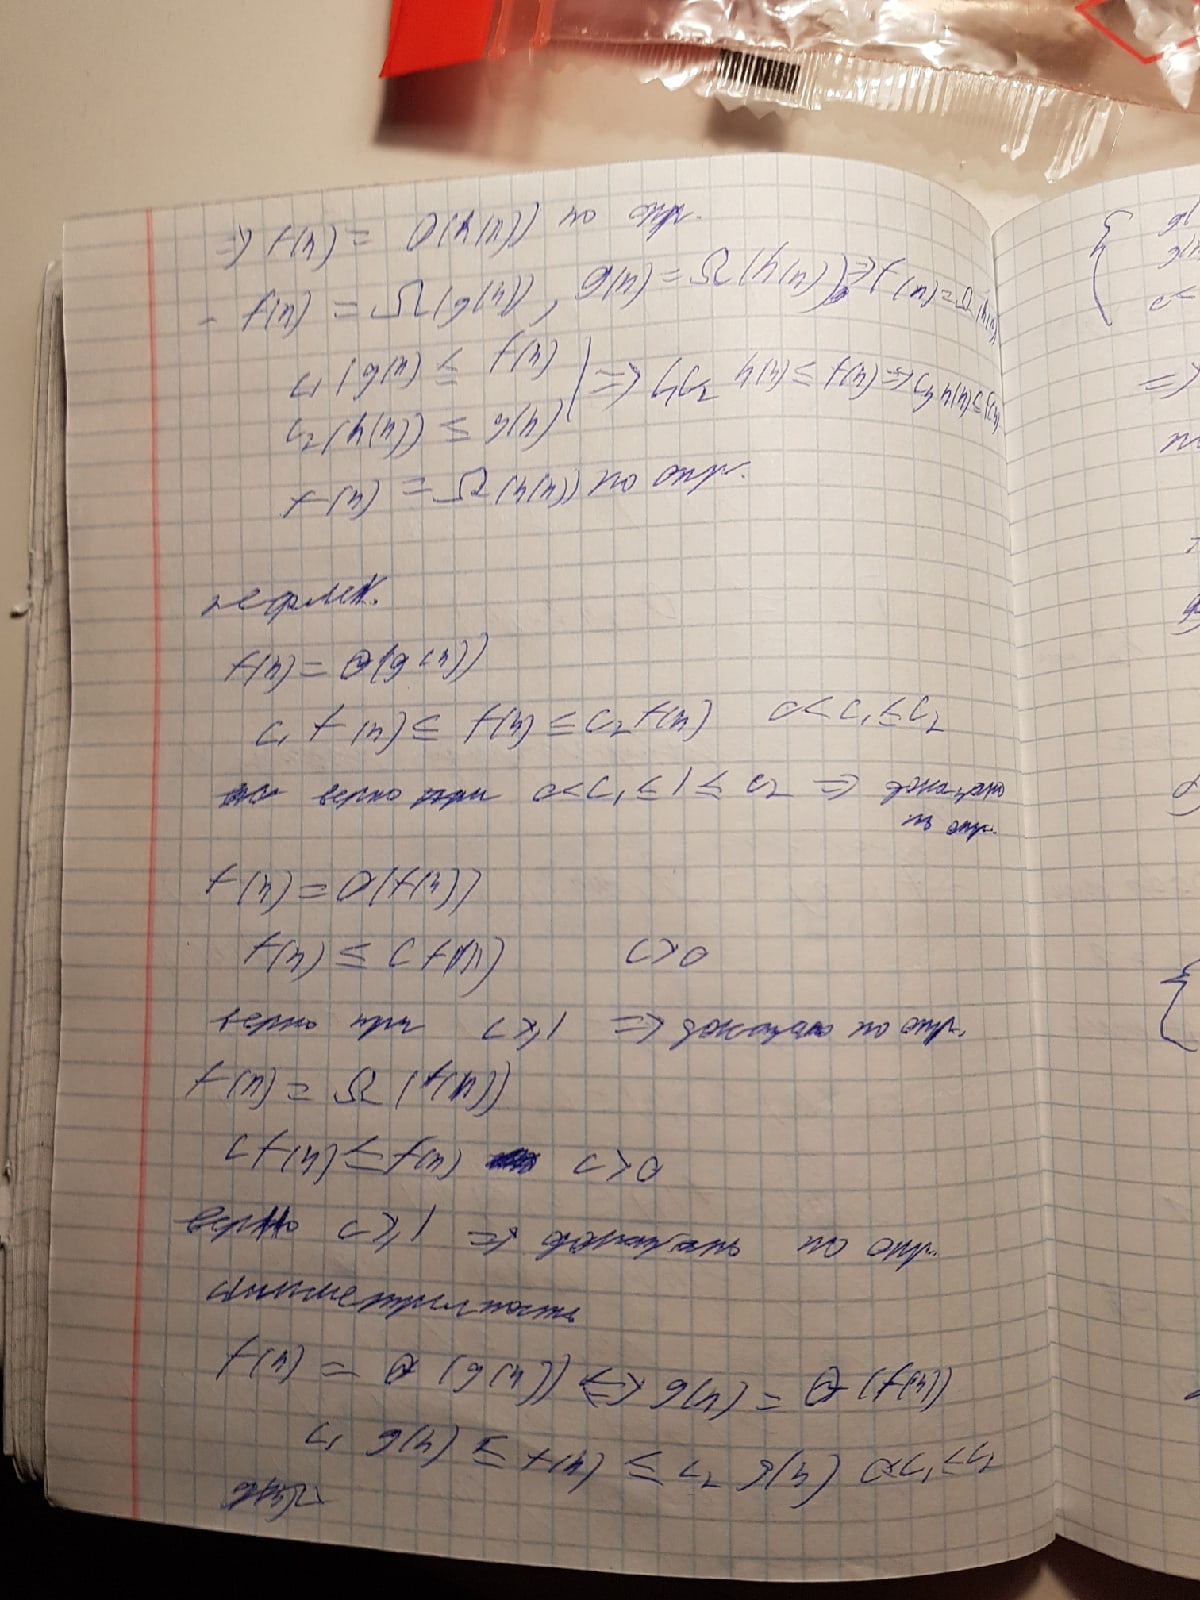 => f(n) = O(h(n)) по опр.
- f(n) = Ω(g(n)), g(n) = Ω(h(n)) => f(n) = Ω(h(n))
c₁(g(n)) ≤ f(n) | => c₁c₂ h(n) ≤ f(n) => c₃h(n) ≤ f(n)
c₂(h(n)) ≤ g(n)
f(n) = Ω(h(n)) по опр.
рефлек.
f(n) = Θ(g(n))
c₁ f(n) ≤ f(n) ≤ c₂ f(n) 0 < c₁ ≤ c₂
верно при 0 < c₁ ≤ 1 ≤ c₂ => доказано
из опр.
f(n) = O(f(n))
f(n) ≤ C f(n) C > 0
верно при C ≥ 1 => доказано по опр.
f(n) = Ω(f(n))
C f(n) ≤ f(n) C > 0
верно C ≥ 1 => доказано по опр.
симметричность
f(n) = Θ(g(n)) <=> g(n) = Θ(f(n))
c₁ g(n) ≤ f(n) ≤ c₂ g(n) 0 < c₁ ≤ c₂